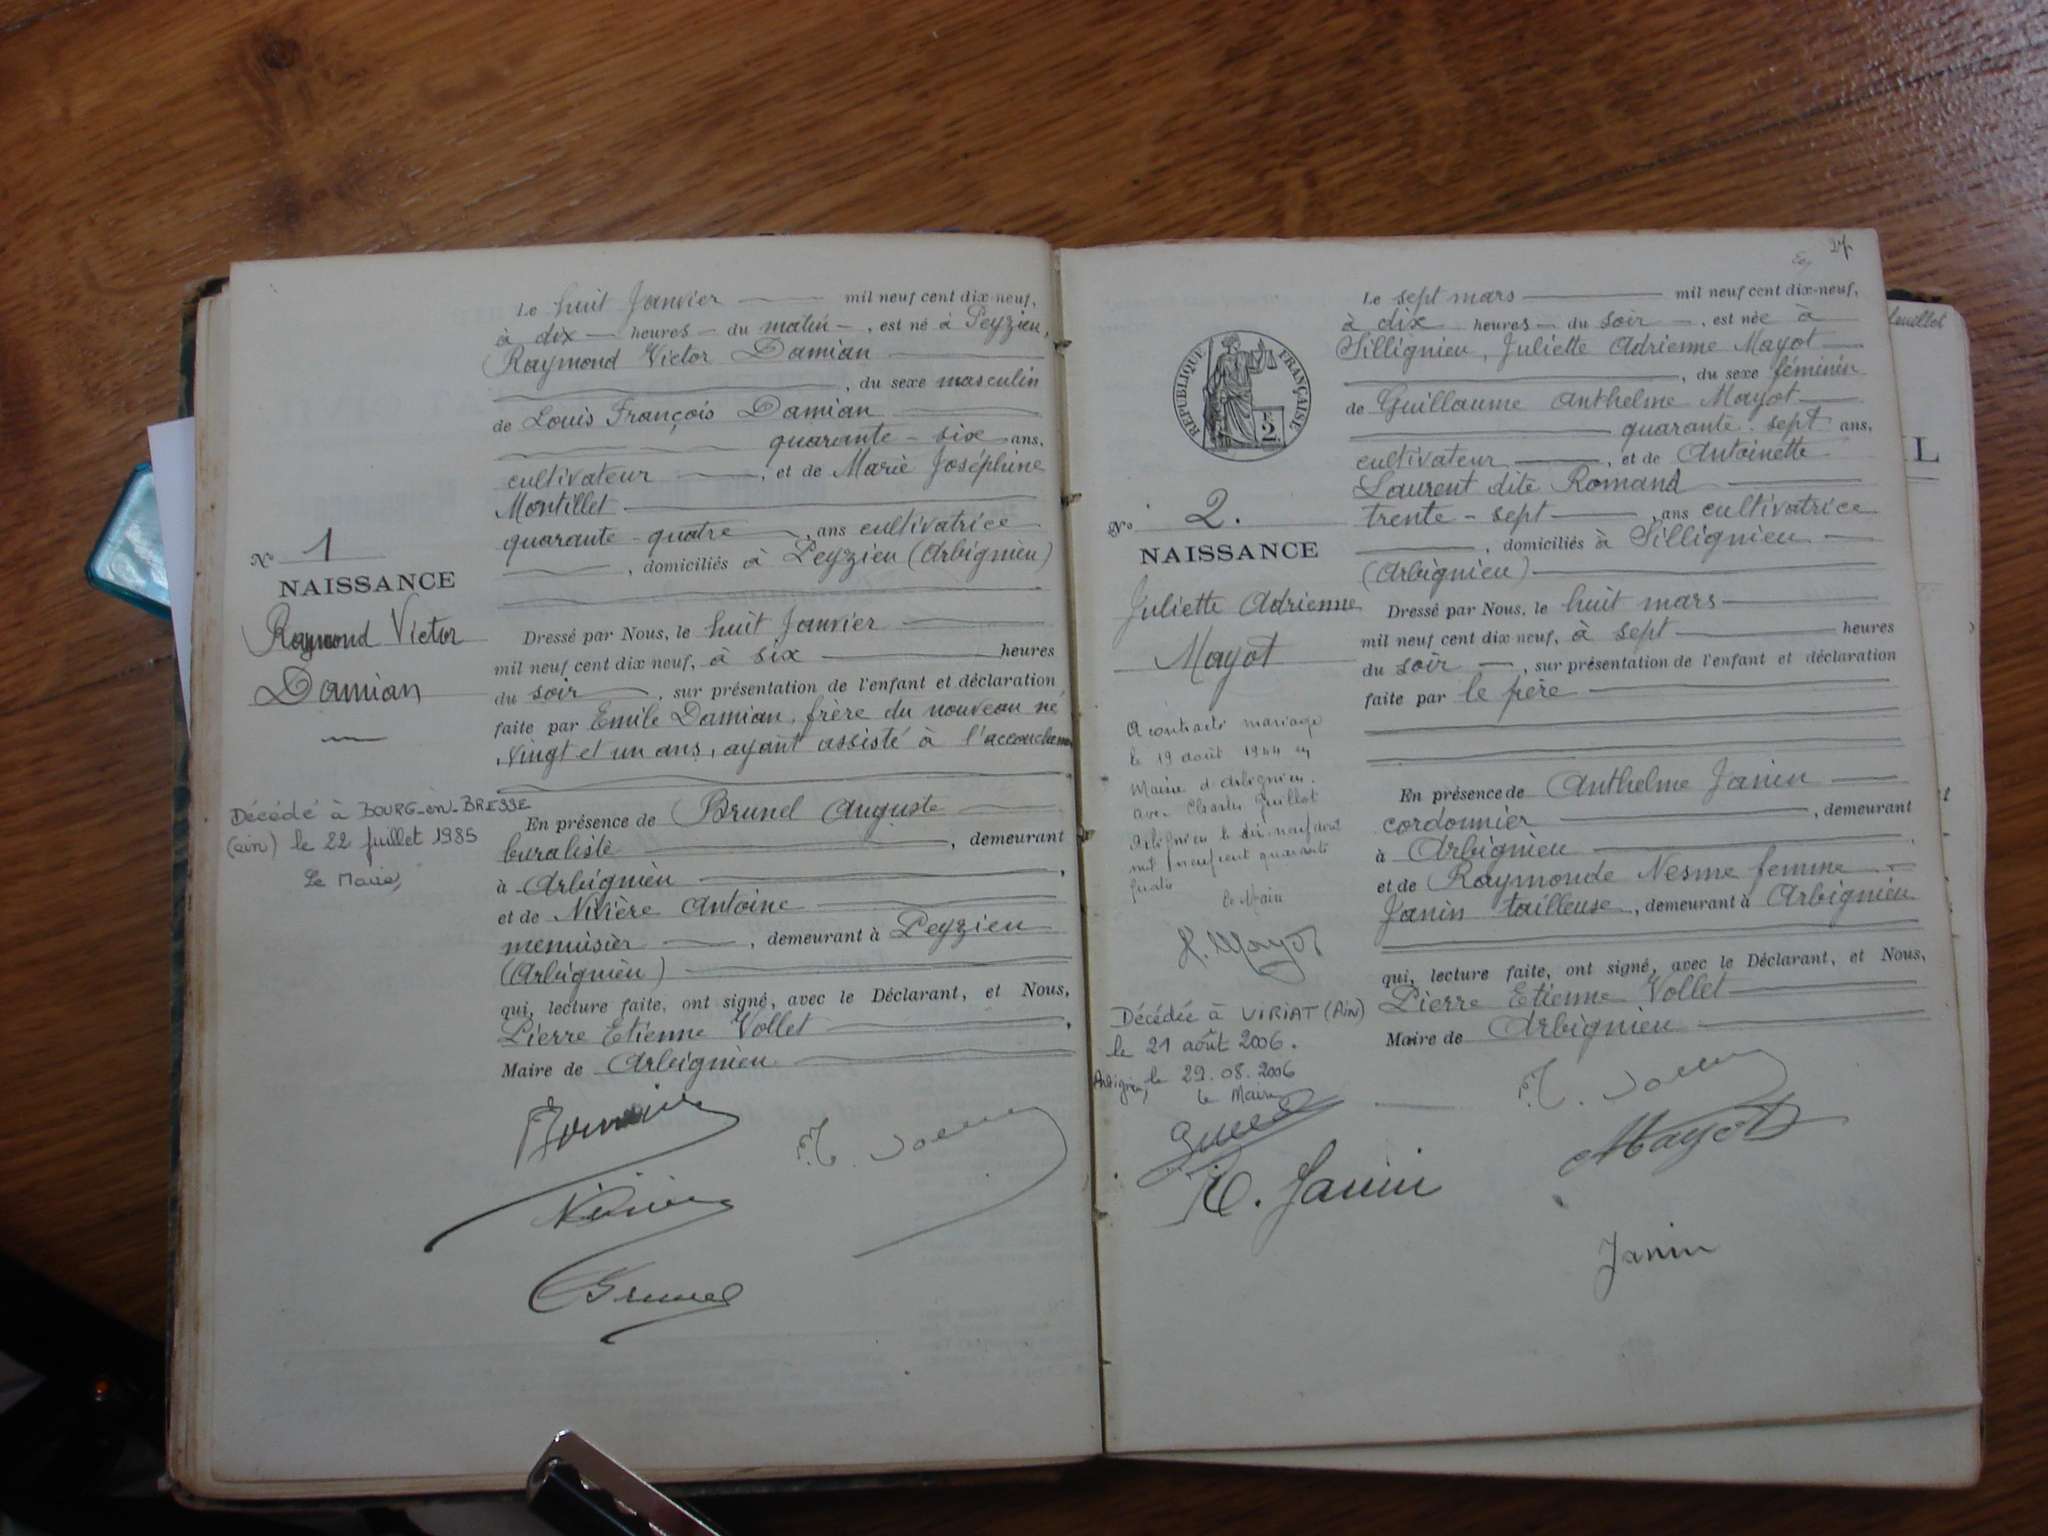 N° 1
NAISSANCE
Raymond Victor
Damian
Décédé à BOURG-en-BRESSE
(ain) le 22 juillet 1985
Le Maire,
Le huit Janvier mil neuf cent dix-neuf,
à dix heures du matin, est né à Peyzieu,
Raymond Victor Damian
, du sexe masculin
de Louis François Damian
quarante-six ans,
cultivateur, et de Marie Joséphine
Montillet
quarante-quatre, ans cultivatrice
, domiciliés à Peyzieu (Arbignieu)
Dressé par Nous, le huit Janvier
mil neuf cent dix neuf, à six heures
du soir, sur présentation de l'enfant et déclaration
faite par Emile Damian, frère du nouveau né
vingt et un ans, ayant assisté à l'accouchem
En présence de Brunel Auguste
buraliste, demeurant
à Arbignieu,
et de Nivière Antoine
menuisier, demeurant à Peyzieu
(Arbignieu)
qui, lecture faite, ont signé, avec le Déclarant, et Nous,
Pierre Etienne Vollet,
Maire de Arbignieu
Nivière
Brunel
27
RÉPUBLIQUE FRANÇAISE
N° 2.
NAISSANCE
Juliette Adrienne
Mayot
A contracté mariage
le 19 août 1944 en
Mairie d'Arbignieu
avec Charles Guillot
Arbignieu le dix-neuf août
mil neuf cent quarante
quatre
le Maire
Mayot
Décédée à VIRIAT (Ain)
le 21 août 2006.
Arbignieu, le 29.08.2006
le Maire
Le sept mars mil neuf cent dix-neuf,
à dix heures du soir, est née à
Sillignieu, Juliette Adrienne Mayot
, du sexe féminin
de Guillaume Anthelme Mayot
quarante-sept ans,
cultivateur, et de Antoinette
Laurent dite Romand
trente-sept, ans cultivatrice
, domiciliés à Sillignieu
(Arbignieu)
Dressé par Nous, le huit mars
mil neuf cent dix neuf, à sept heures
du soir, sur présentation de l'enfant et déclaration
faite par le père
En présence de Anthelme Janin
cordonnier, demeurant
à Arbignieu
et de Raymonde Nesme femme
Janin tailleuse, demeurant à Arbignieu
qui, lecture faite, ont signé, avec le Déclarant, et Nous,
Pierre Etienne Vollet
Maire de Arbignieu
Mayot
R. Janin
Janin